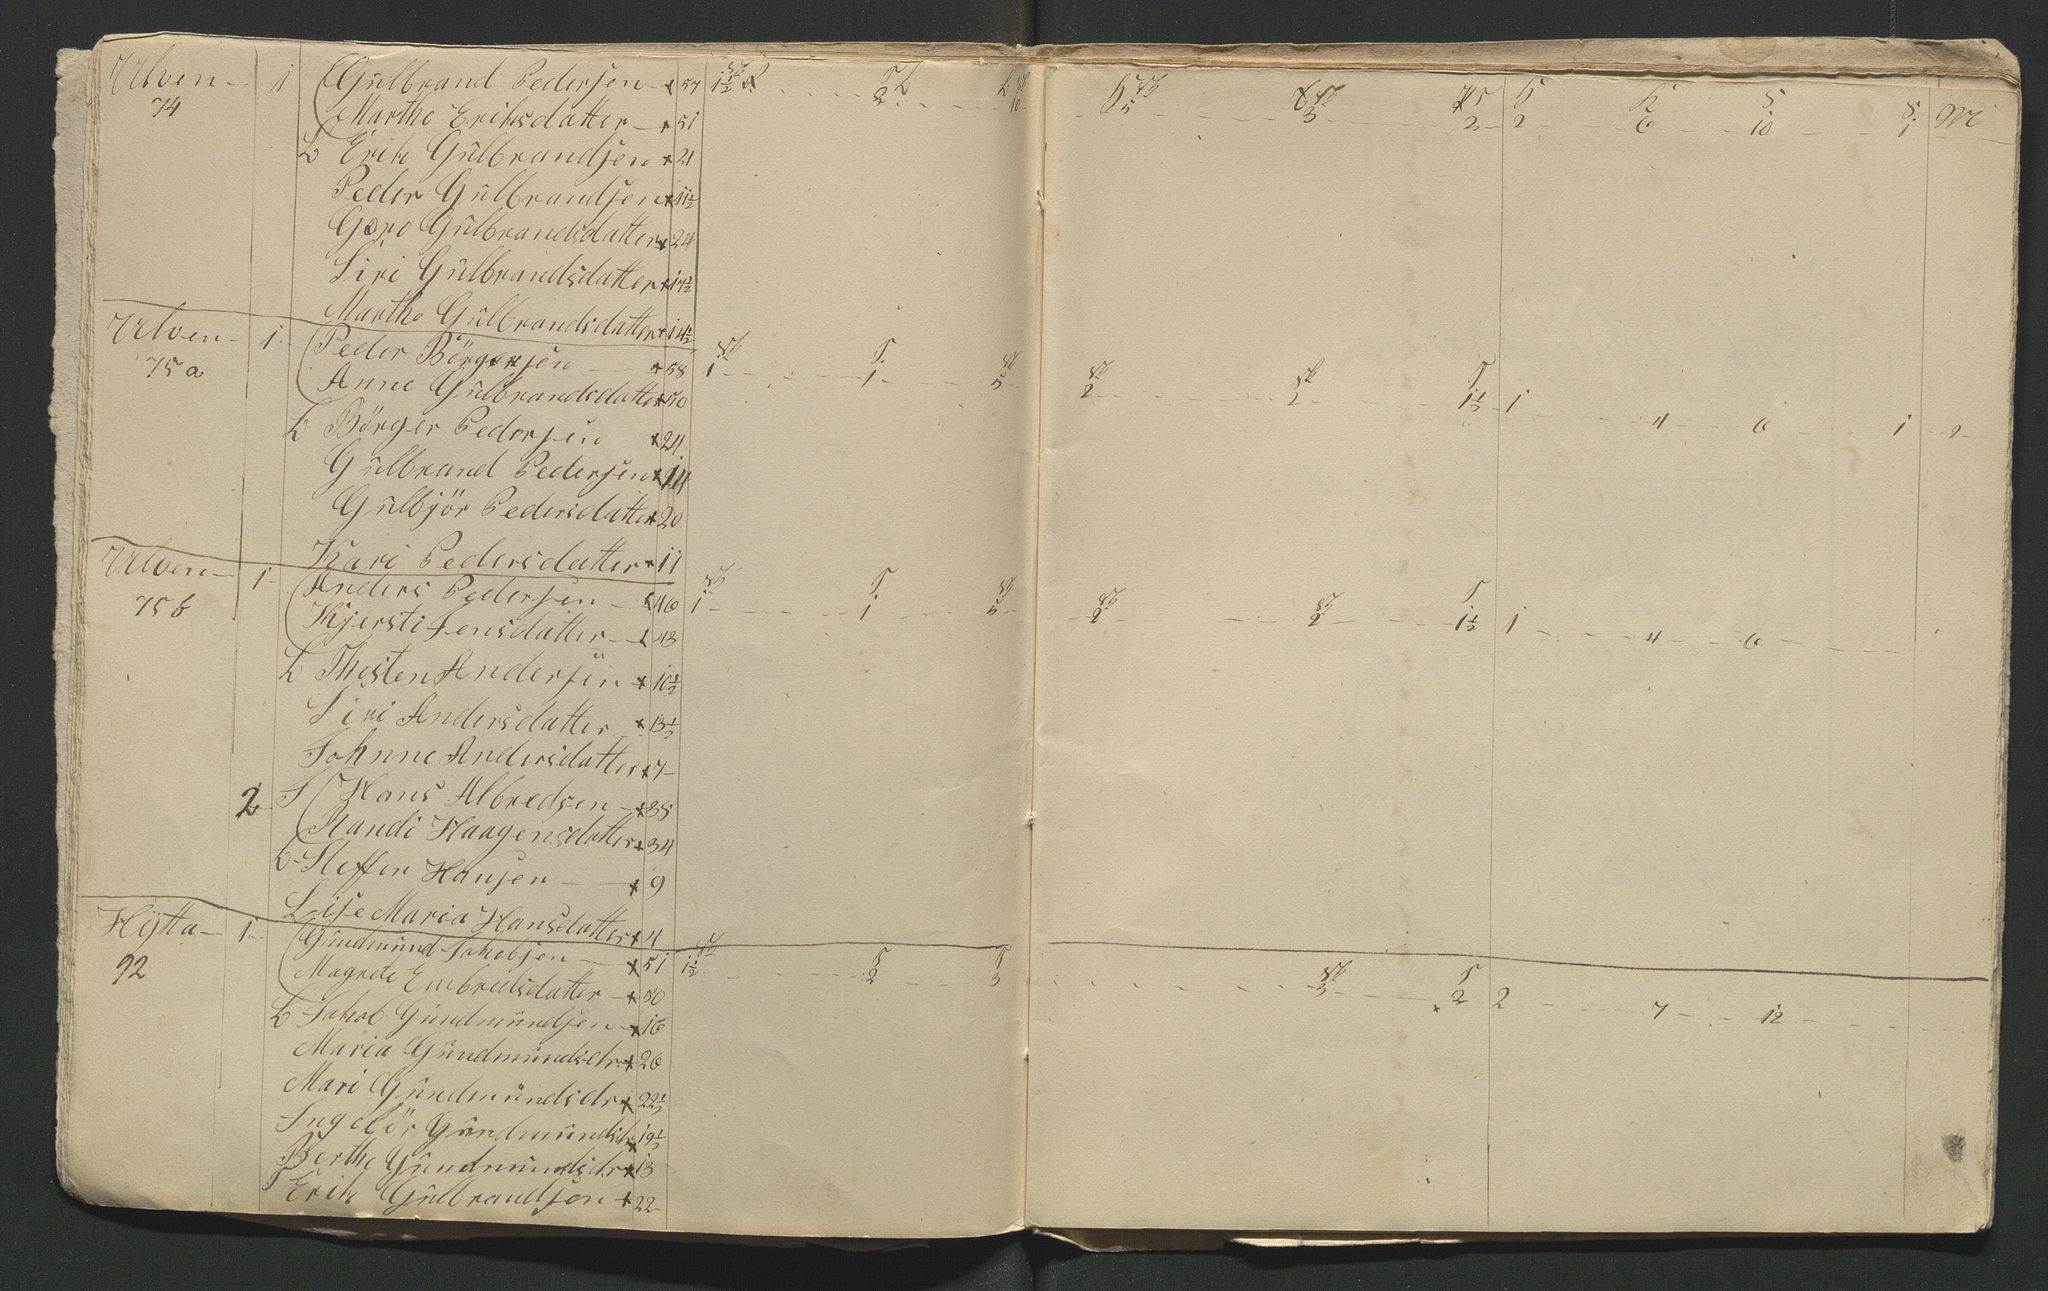 Ulven 1 Gulbrand Pedersen 57 1½ 2
74 Marthe Eriksdatter 51 2 2 6 10 1
L Erik Gulbrandsen 21
Peder Gulbrandsen 11½
Goro Gulbrandsdatter 24
Siri Gulbrandsdatter 17½
Marthe Gulbrandsdatter 14½
Ulven 1 Peder Börgersen 58 1 1 5 2 2 1½ 1 4 6 1 2
75a Anne Gulbrandsdatter 50
L Börger Pedersen 24
Gulbrand Pedersen 14
Gulbjör Pedersdatter 20
Kari Pedersdatter 11
Ulven 1 Anders Pedersen 46 1 1 5 2 2 1½ 1 4 6
75b Kjersti Jensdatter 43
L Thosten Andersen 10½
Siri Andersdatter 13½
Johnne Andersdatter 7
2 Hans Albredsen 38
Randi Haagensdatter 34
L Steffen Hansen 9
Lise Maria Hansdatter 4
Hÿtta 1 Gundmund Jakobsen 51 1½ 2 3 3 2 2 7 12
92 Magrete Embretsdatter 50
L Jakob Gundmundsen 16
Maria Gundmundsdr 26
Mari Gundmundsdr 22½
Ingebör Gundmundsdr 19½
Berthe Gundmundsdr 13
T Erik Gulbrandsen 22